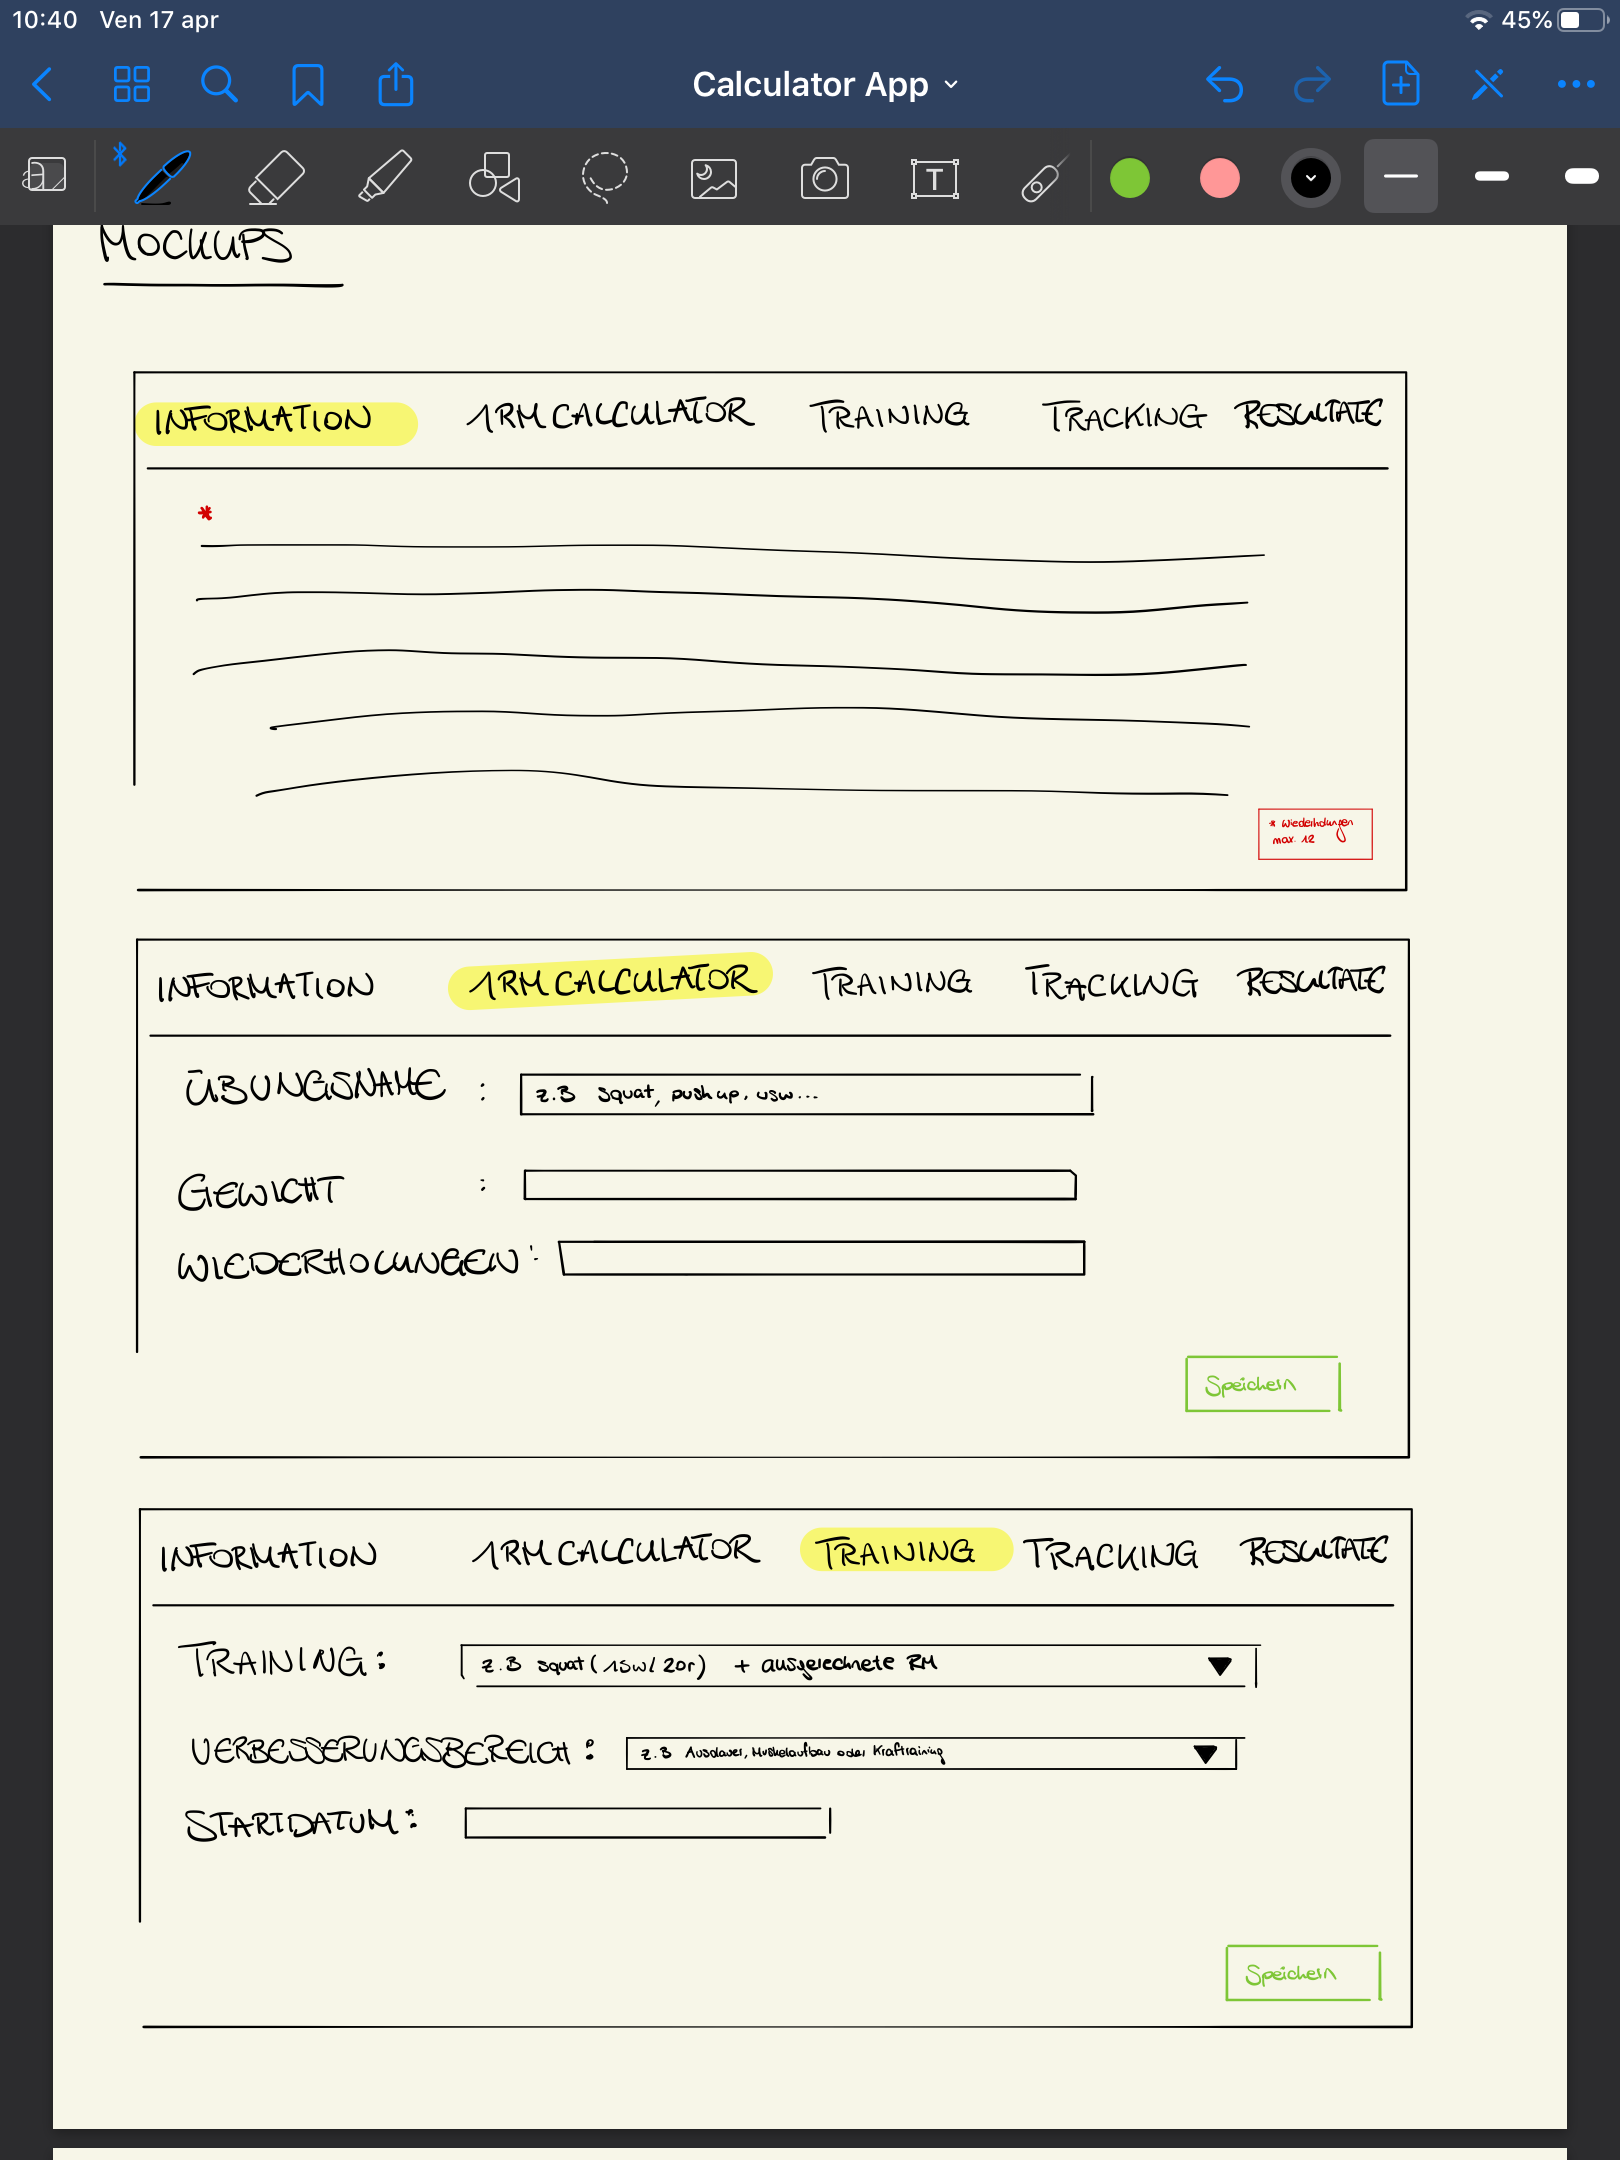 10:40 Ven 17 apr 45%
Calculator App
T
MOCKUPS
INFORMATION 1RM CALCULATOR TRAINING TRACKING RESULTATE
*
* Wiederholungen
max. 12
INFORMATION 1RM CALCULATOR TRAINING TRACKING RESULTATE
ÜBUNGSNAME : z.B squat, push up, usw...
GEWICHT :
WIEDERHOLUNGEN :
Speichern
INFORMATION 1RM CALCULATOR TRAINING TRACKING RESULTATE
TRAINING : z.B squat (15w/20r) + ausgerechnete RM
VERBESSERUNGSBEREICH : z.B Ausdauer, Muskelaufbau oder Kraftraining
STARTDATUM :
Speichern